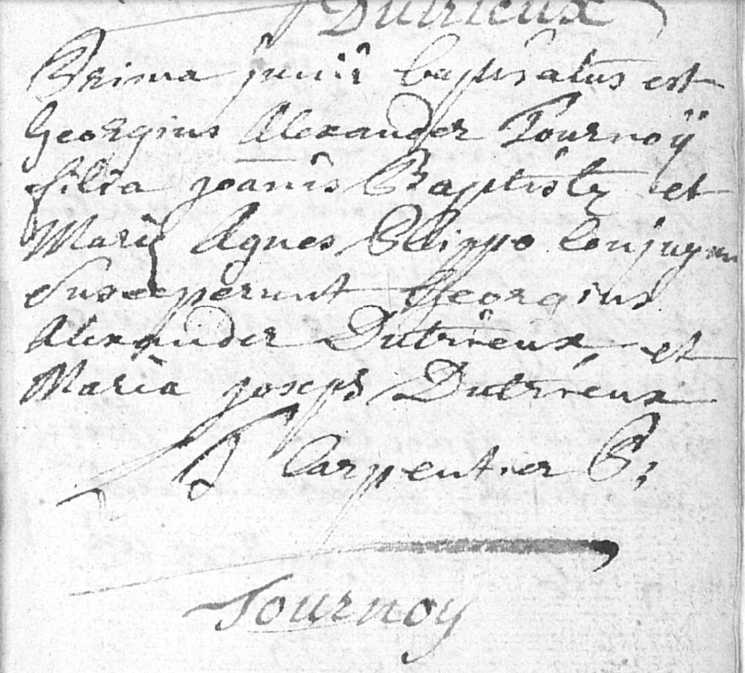 Dutrieux
Prima junii baptisatus est
Georgius Alexander Tournoÿ
filia joanis Baptistę et
Marię Agnes Philippo Conjugum
Susceperunt Georgius
Alexander Dutrieux et
Maria joseph Dutrieux
Carpentier P:
Tournoy